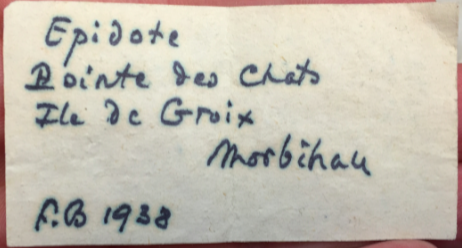 Epidote
Pointe des Chats
Ile de Groix
Morbihan
F.B 1938